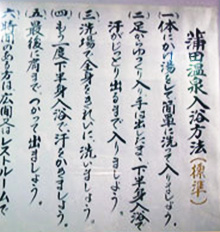 蒲田温泉入浴方法(標準)
(一)体にかけ湯をして簡単に洗って入りましょう。
(二)足からゆっくり入り手は出だまま下半身入浴で
汗がじっとり出るまで入りましょう。
(三)洗場で全身をきれいに、洗いましょう。
(四)もう一度下半身入浴で汗をかきましょう。
(五)最後に肩まで、つかって出ましょう。
六 時間のある方は広間又はレストルームで